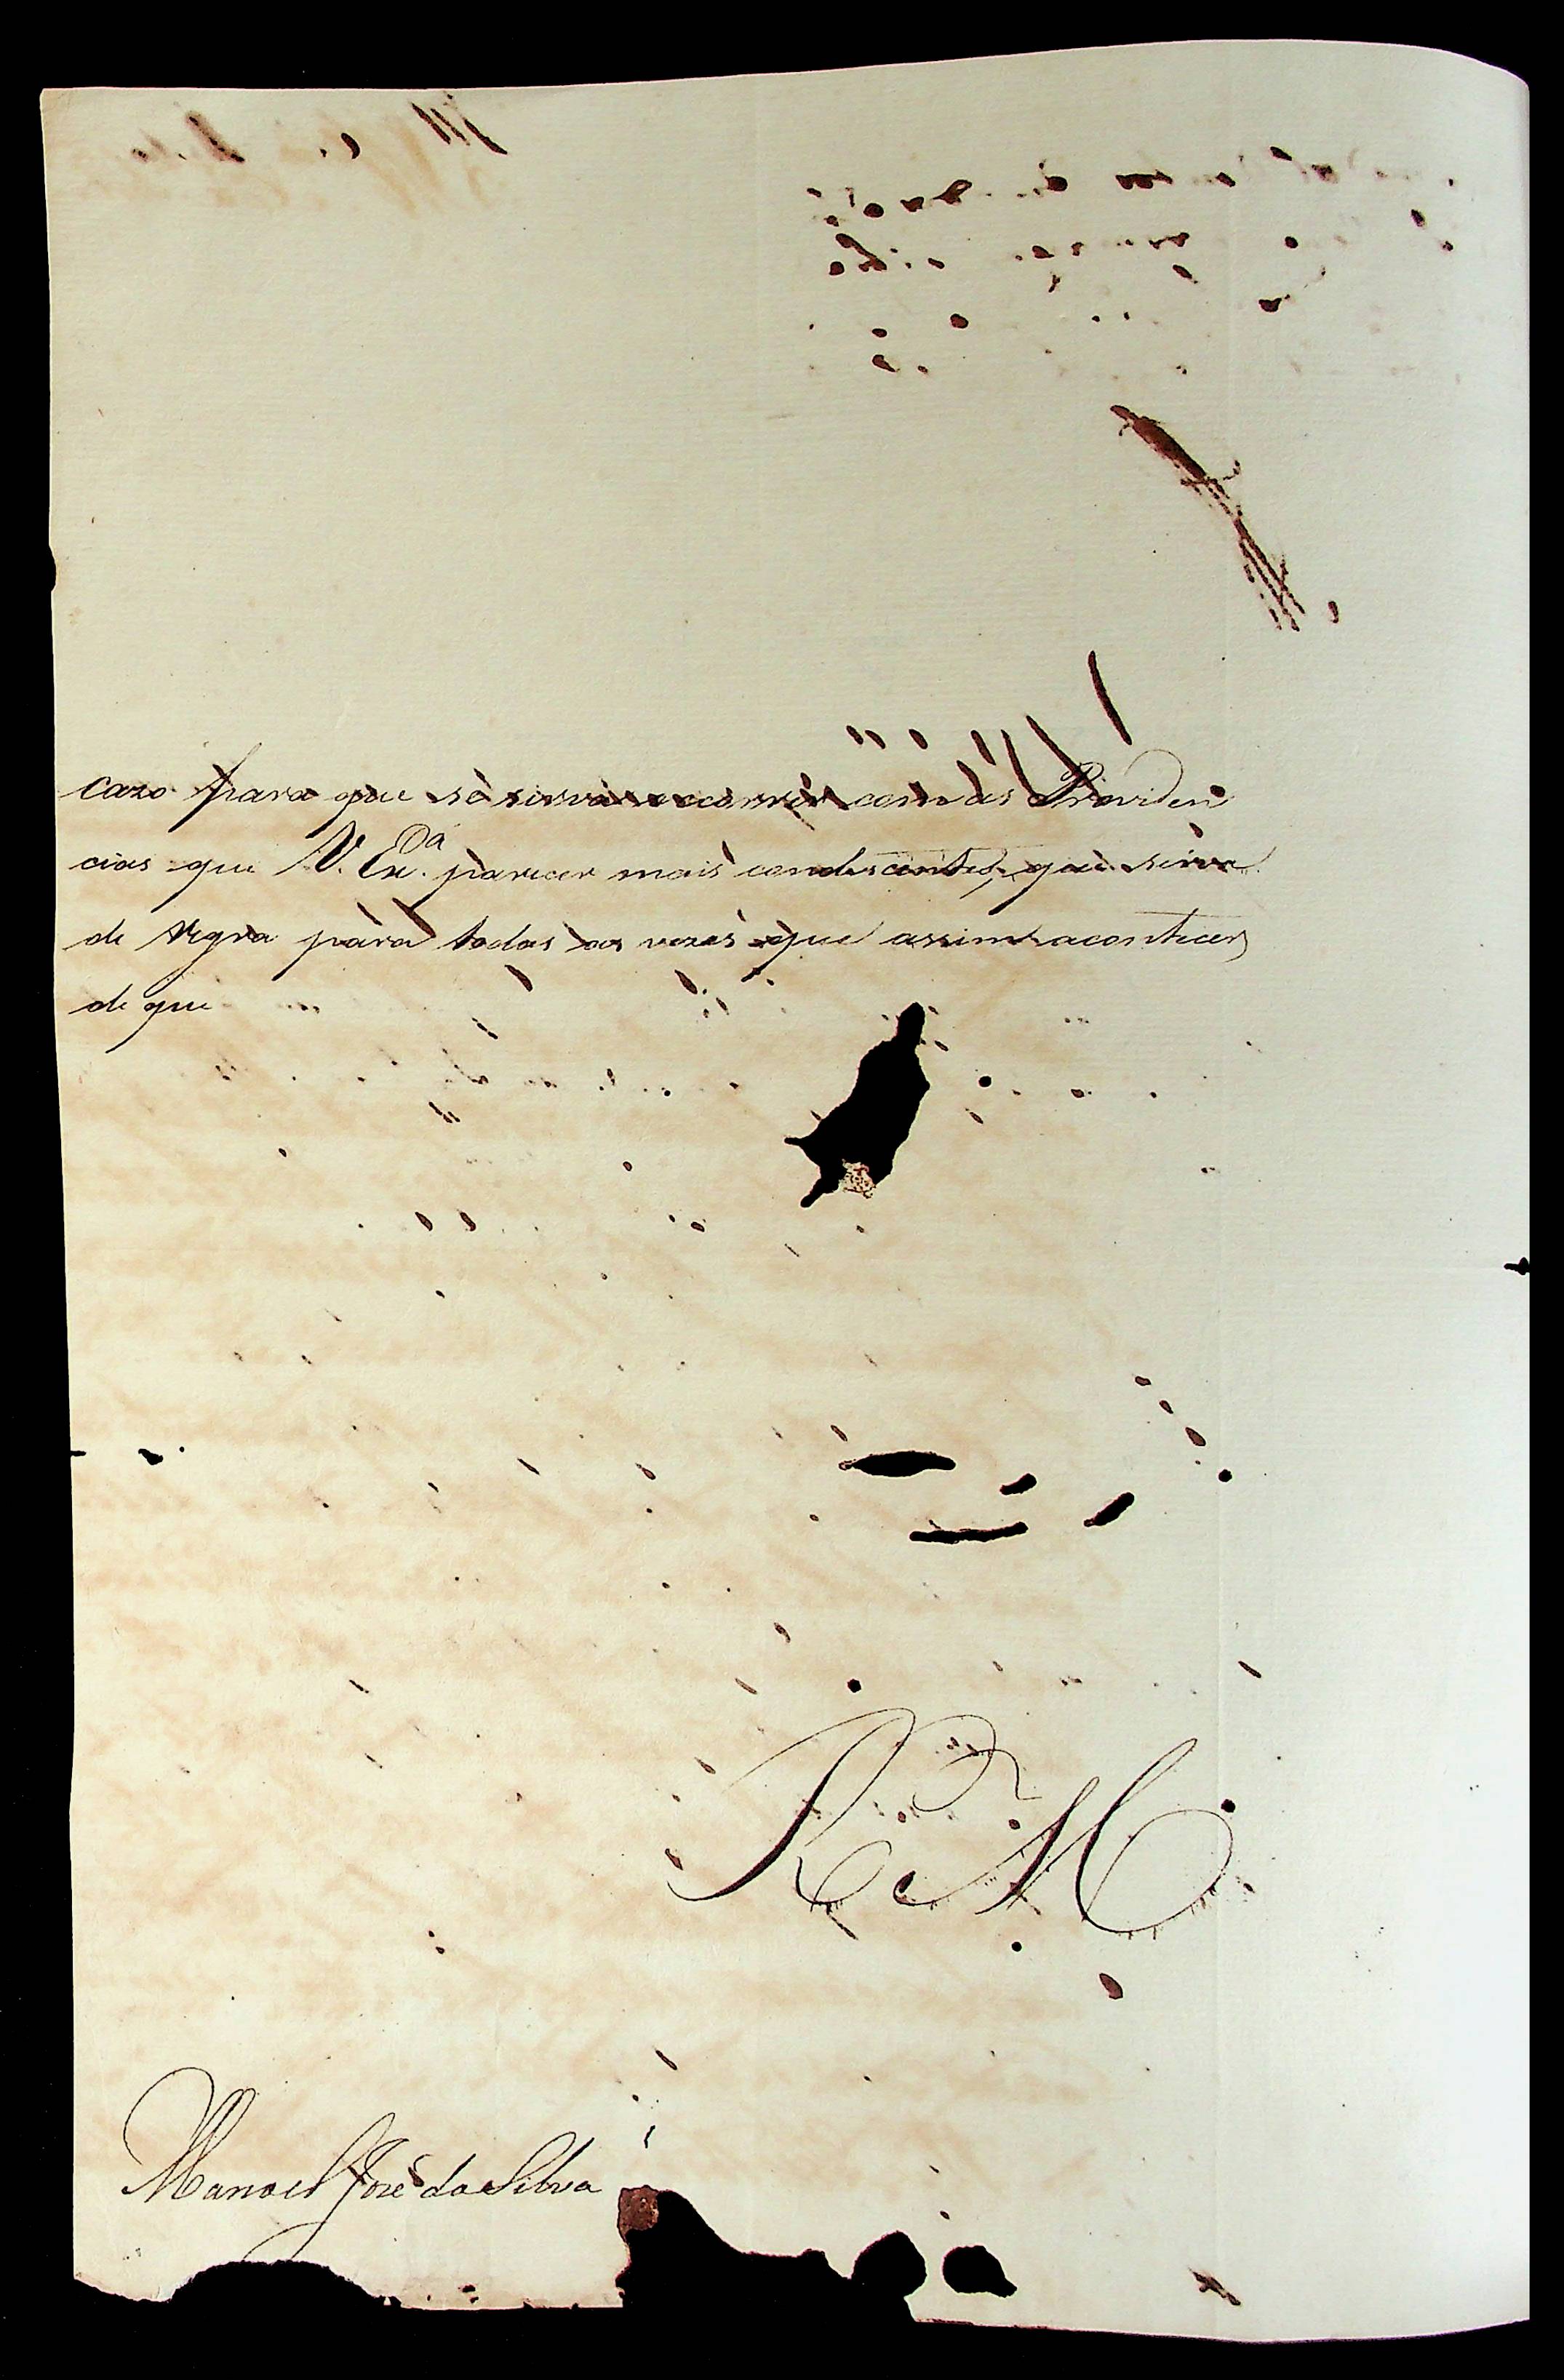 cazo para que se sirva soccorrer com as Providen
cias que V. Ex.ª parecer mais condescentes, que sirva
de regra para todas as vezes que assim acontecer
de que
R e M
Manoel José da Silva